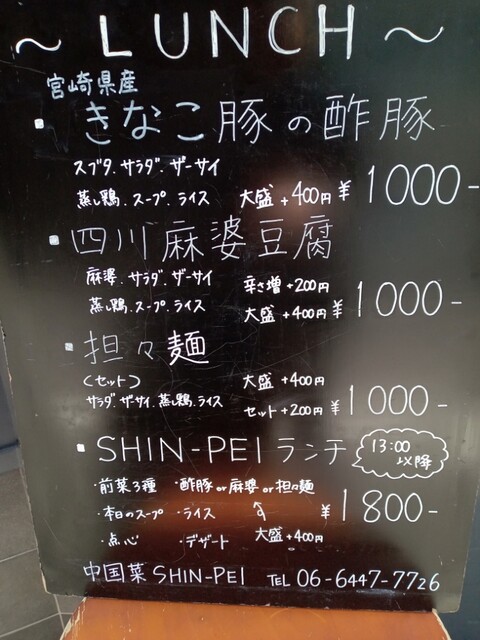 ～ LUNCH ～
宮崎県産
・きなこ豚の酢豚
スブタ.サラダ.ザーサイ
蒸し鶏.スープ.ライス 大盛+400円 ¥1000-
・四川麻婆豆腐
麻婆.サラダ.ザーサイ 辛さ増+200円
蒸し鶏.スープ.ライス 大盛+400円 ¥1000-
・担々麺
〈セット〉 大盛+400円
サラダ.ザーサイ.蒸し鶏.ライス セット+200円 ¥1000-
・SHIN-PEIランチ 13:00以降
・前菜3種 ・酢豚or麻婆or担々麺
・本日のスープ ・ライス ¥1800-
・点心 ・デザート 大盛+400円
中国菜 SHIN-PEI TEL 06-6447-7726